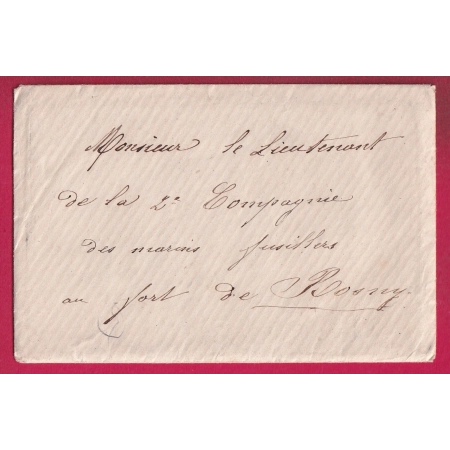 Monsieur le Lieutenant
de la 2e Compagnie
des marins fusillers
au fort de Rosny